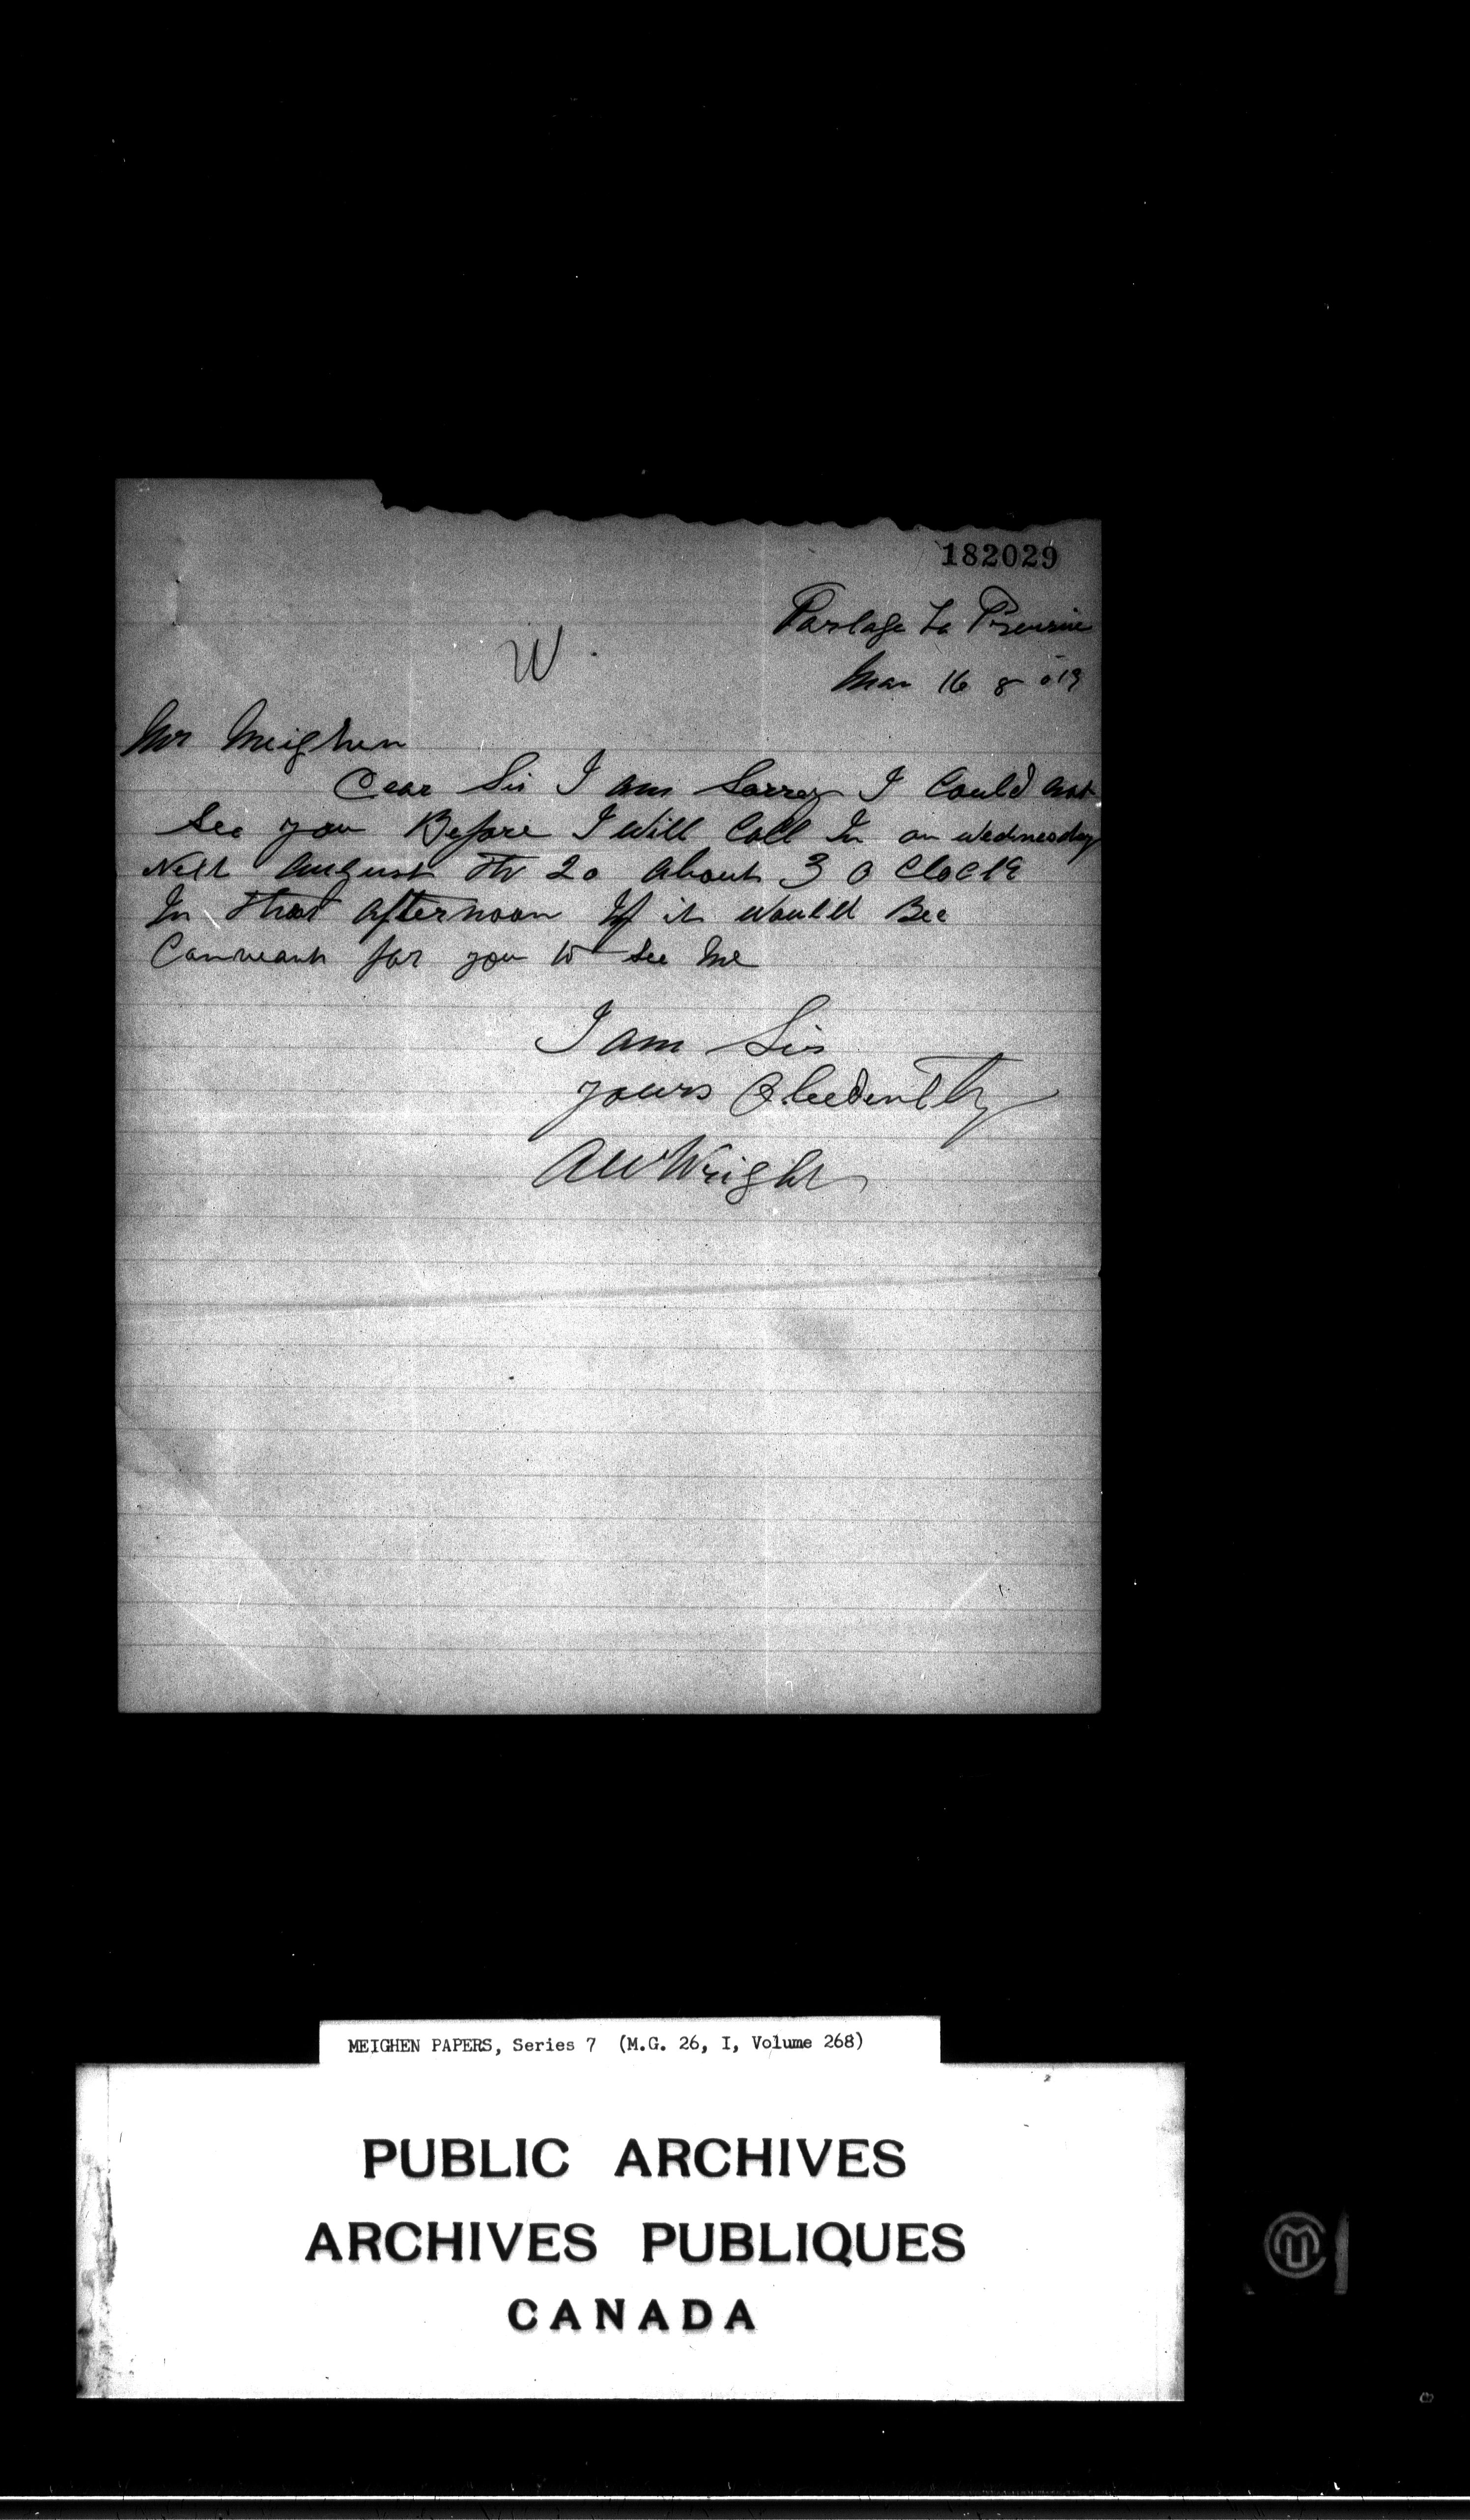 182029
Portage La Prairie
W.
Man 16 8 - 19
Mr Meighen
Dear Sir I am Sorrey I Could not
See you Before I Will Call In on Wednesday
Next August th 20 About 3 O Clock
In that Afternoon If it Would Bee
for you to See Me
I am Sir
yours Obedently
AW Wright
MEIGHEN PAPERS, Series 7 (M.G. 26, I, Volume 268)
PUBLIC ARCHIVES
ARCHIVES PUBLIQUES
CANADA